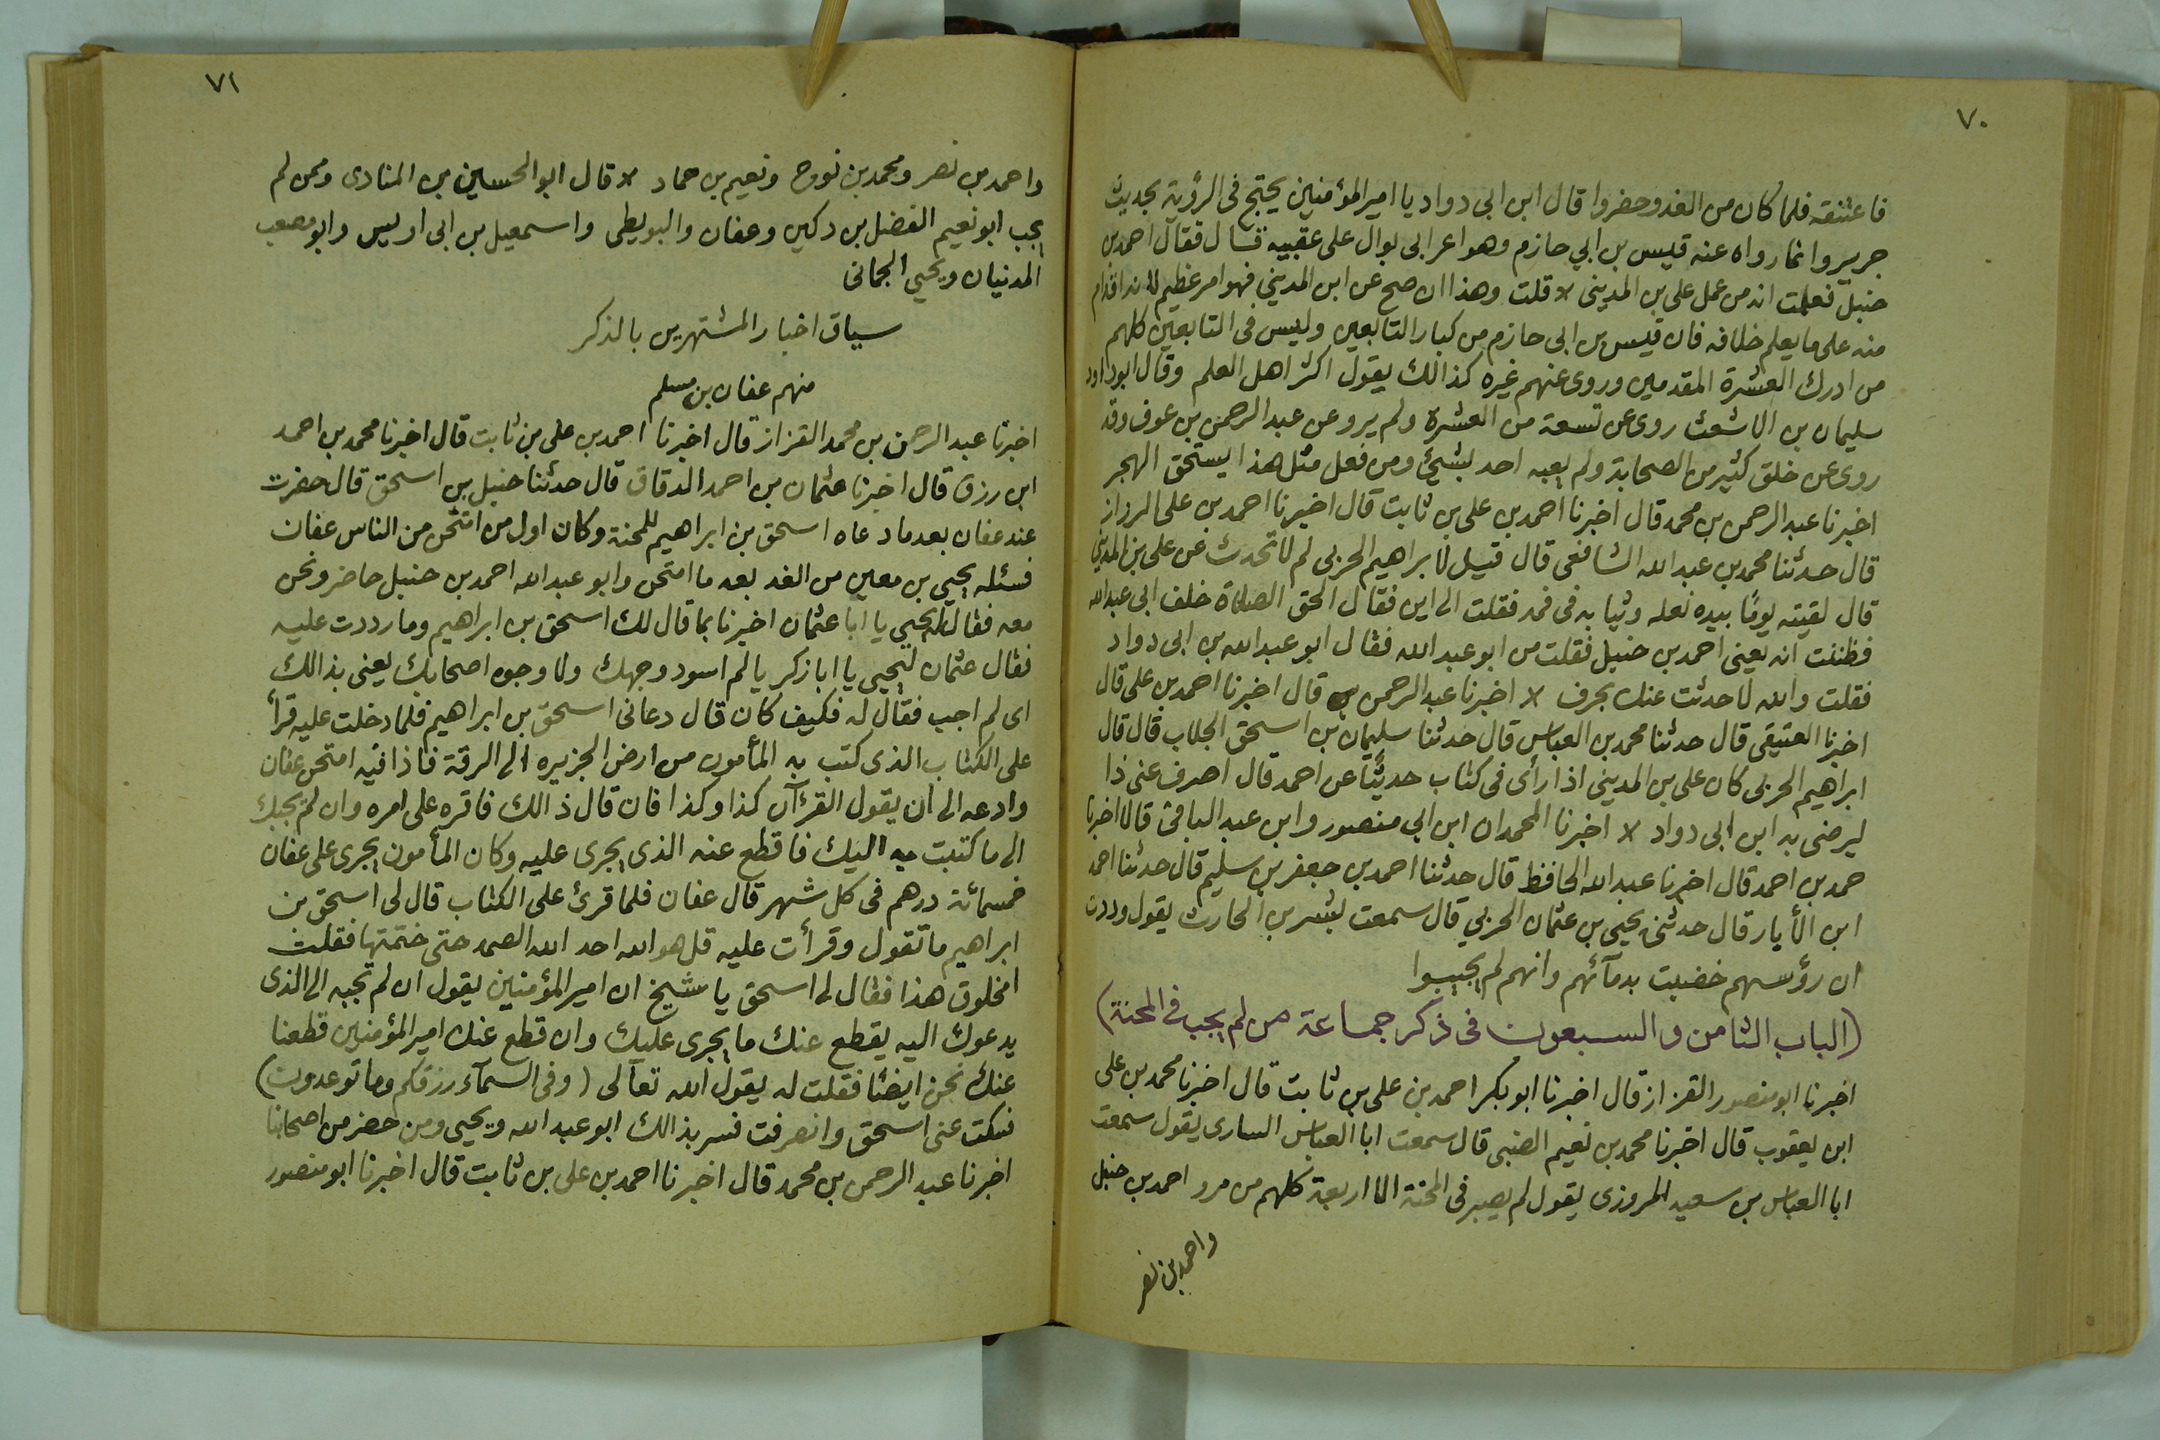 ٧٠
فاعتنقه فلما كان من الغد وحضروا قال ابن ابى دواد يا امير المؤمنين يحتج فى الرؤية بحديث
جرير وانما رواه عنه قيس بن ابي حازم وهو اعرابى بوال على عقبيه قال فقال احمد بن
حنبل فعلمت انه من عمل على بن المدينى قلت وهذا ان صح عن ابن المدينى فهو امر عظيم لانه اقدام
منه على ما يعلم خلافه فان قيس بن ابى حازم من كبار التابعين وليس فى التابعين كلهم
من ادرك العشرة المقدمين وروى عنهم غيره كذالك يقول اكثر اهل العلم وقال ابو داود
سليمان بن الاشعث روى عن تسعة من العشرة ولم يرو عن عبد الرحمن بن عوف وقد
روى عن خلق كثير من الصحابة ولم يعبه احد بشئ ومن فعل مثل هذا يستحق الهجر
اخبرنا عبد الرحمن بن محمد قال اخبرنا احمد بن على بن ثابت قال اخبرنا احمد بن على الرزاز
قال حدثنا محمد بن عبد الله الشافعى قال قيل لابراهيم الحربى لم لا تحدث عن على بن المدينى
قال لقيته يومًا بيده نعله وثيابه فى فمه فقلت الى اين فقال الحق الصلاة خلف ابى عبد الله
فظننت انه يعنى احمد بن حنبل فقلت من ابو عبد الله فقال ابو عبد الله بن ابى دواد
فقلت والله لا حدثت عنك بحرف اخبرنا عبد الرحمن بن قال اخبرنا احمد بن على قال
اخبرنا العتيقى قال حدثنا محمد بن العباس قال حدثنا سليمان بن اسحق الجلاب قال قال
ابراهيم الحربى كان على بن المدينى اذا رأى فى كتاب حديثًا عن احمد قال اصرف عنى ذا
ليرضى به ابن ابى دواد اخبرنا المحمدان ابن ابي منصور وابن عبد الباقى قالا اخبرنا
حمد بن احمد قال اخبرنا عبد الله الحافظ قال حدثنا احمد بن جعفر بن سليم قال حدثنا احمد
ابن الأيار قال حدثنى يحيى بن عثمان الحربي قال سمعت بشر بن الحارث يقول وددت
ان رؤسهم خضبت بدمآئهم وانهم لم يجيبوا
(الباب الثامن والسبعون فى ذكر جماعة من لم يجب في المحنة)
اخبرنا ابو منصور القزاز قال اخبرنا ابو بكر احمد بن على بن ثابت قال اخبرنا محمد بن على
ابن يعقوب قال اخبرنا محمد بن نعيم الضبى قال سمعت ابا العباس السارى يقول سمعت
ابا العباس بن سعيد المروزى يقول لم يصبر فى المحنة الا اربعة كلهم من مرو احمد بن حنبل
واحمد بن نصر
٧١
واحمد بن نصر ومحمد بن نوح ونعيم بن حماد قال ابو الحسين بن المنادى وممن لم
يجب ابو نعيم الفضل بن دكين وعفان والبويطى واسمعيل بن ابى اويس وابو مصعب
المدنيان ويحيي الجمانى
سياق اخبار المشتهرين بالذكر
منهم عفان بن مسلم
اخبرنا عبد الرحمن بن محمد القزاز قال اخبرنا احمد بن على بن ثابت قال اخبرنا محمد بن احمد
ابن رزق قال اخبرنا عثمان بن احمد الدقاق قال حدثنا حنبل بن اسحق قال حضرت
عند عفان بعد ما دعاه اسحق بن ابراهيم للمحنة وكان اول من امتحن من الناس عفان
فسئله يحيي بن معين من الغد بعد ما امتحن وابو عبد الله احمد بن حنبل حاضر ونحن
معه فقال له يحيي يا ابا عثمان اخبرنا بما قال لك اسحق بن ابراهيم وما رددت عليه
فقال عثمان ليحيي يا ابا زكريا لم اسود وجهك ولا وجوه اصحابك يعنى بذالك
اى لم اجب فقال له فكيف كان قال دعانى اسحق بن ابراهيم فلما دخلت عليه قرأ
على الكتاب الذى كتب به المأمون من ارض الجزيره الى الرقة فاذا فيه امتحن عفان
وادعه الى ان يقول القرءآن كذا وكذا فان قال ذالك فاقره على امره وان لم يجبك
الى ما كتبت به اليك فاقطع عنه الذى يجرى عليه وكان المأمون يجرى على عفان
خمسمائة درهم فى كل شهر قال عفان فلما قرئ على الكتاب قال لى اسحق بن
ابراهيم ما تقول وقرأت عليه قل هو الله احد الله الصمد حتى ختمتها فقلت
امخلوق هذا فقال لى اسحق يا شيخ ان امير المؤمنين يقول ان لم تجبه الى الذى
يدعوك اليه يقطع عنك ما يجرى عليك وان قطع عنك امير المؤمنين قطعنا
عنك نحن ايضًا فقلت له يقول الله تعآلى (وفى السمآء رزقكم وما توعدون)
فسكت عنى اسحق وانصرفت فسر بذالك ابو عبد الله ويحيى ومن حضر من اصحابنا
اخبرنا عبد الرحمن بن محمد قال اخبرنا احمد بن على بن ثابت قال اخبرنا ابو منصور